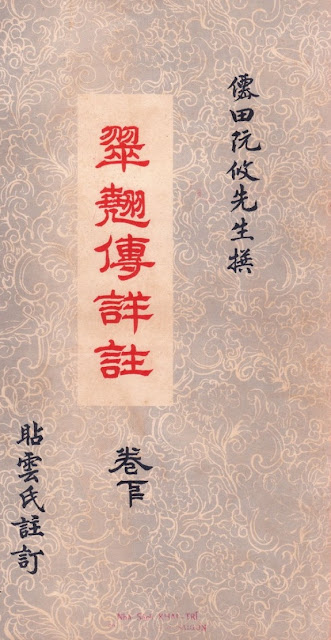 僊田阮攸先生撰
翠翹傳詳註
卷下
貼雲氏註訂
NHÀ SÁCH KHAI-TRÍ
SAIGON